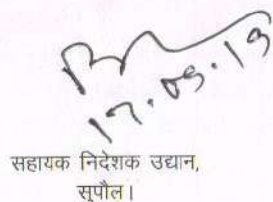 17.05.13
सहायक निदेशक उद्यान,
सुपौल।